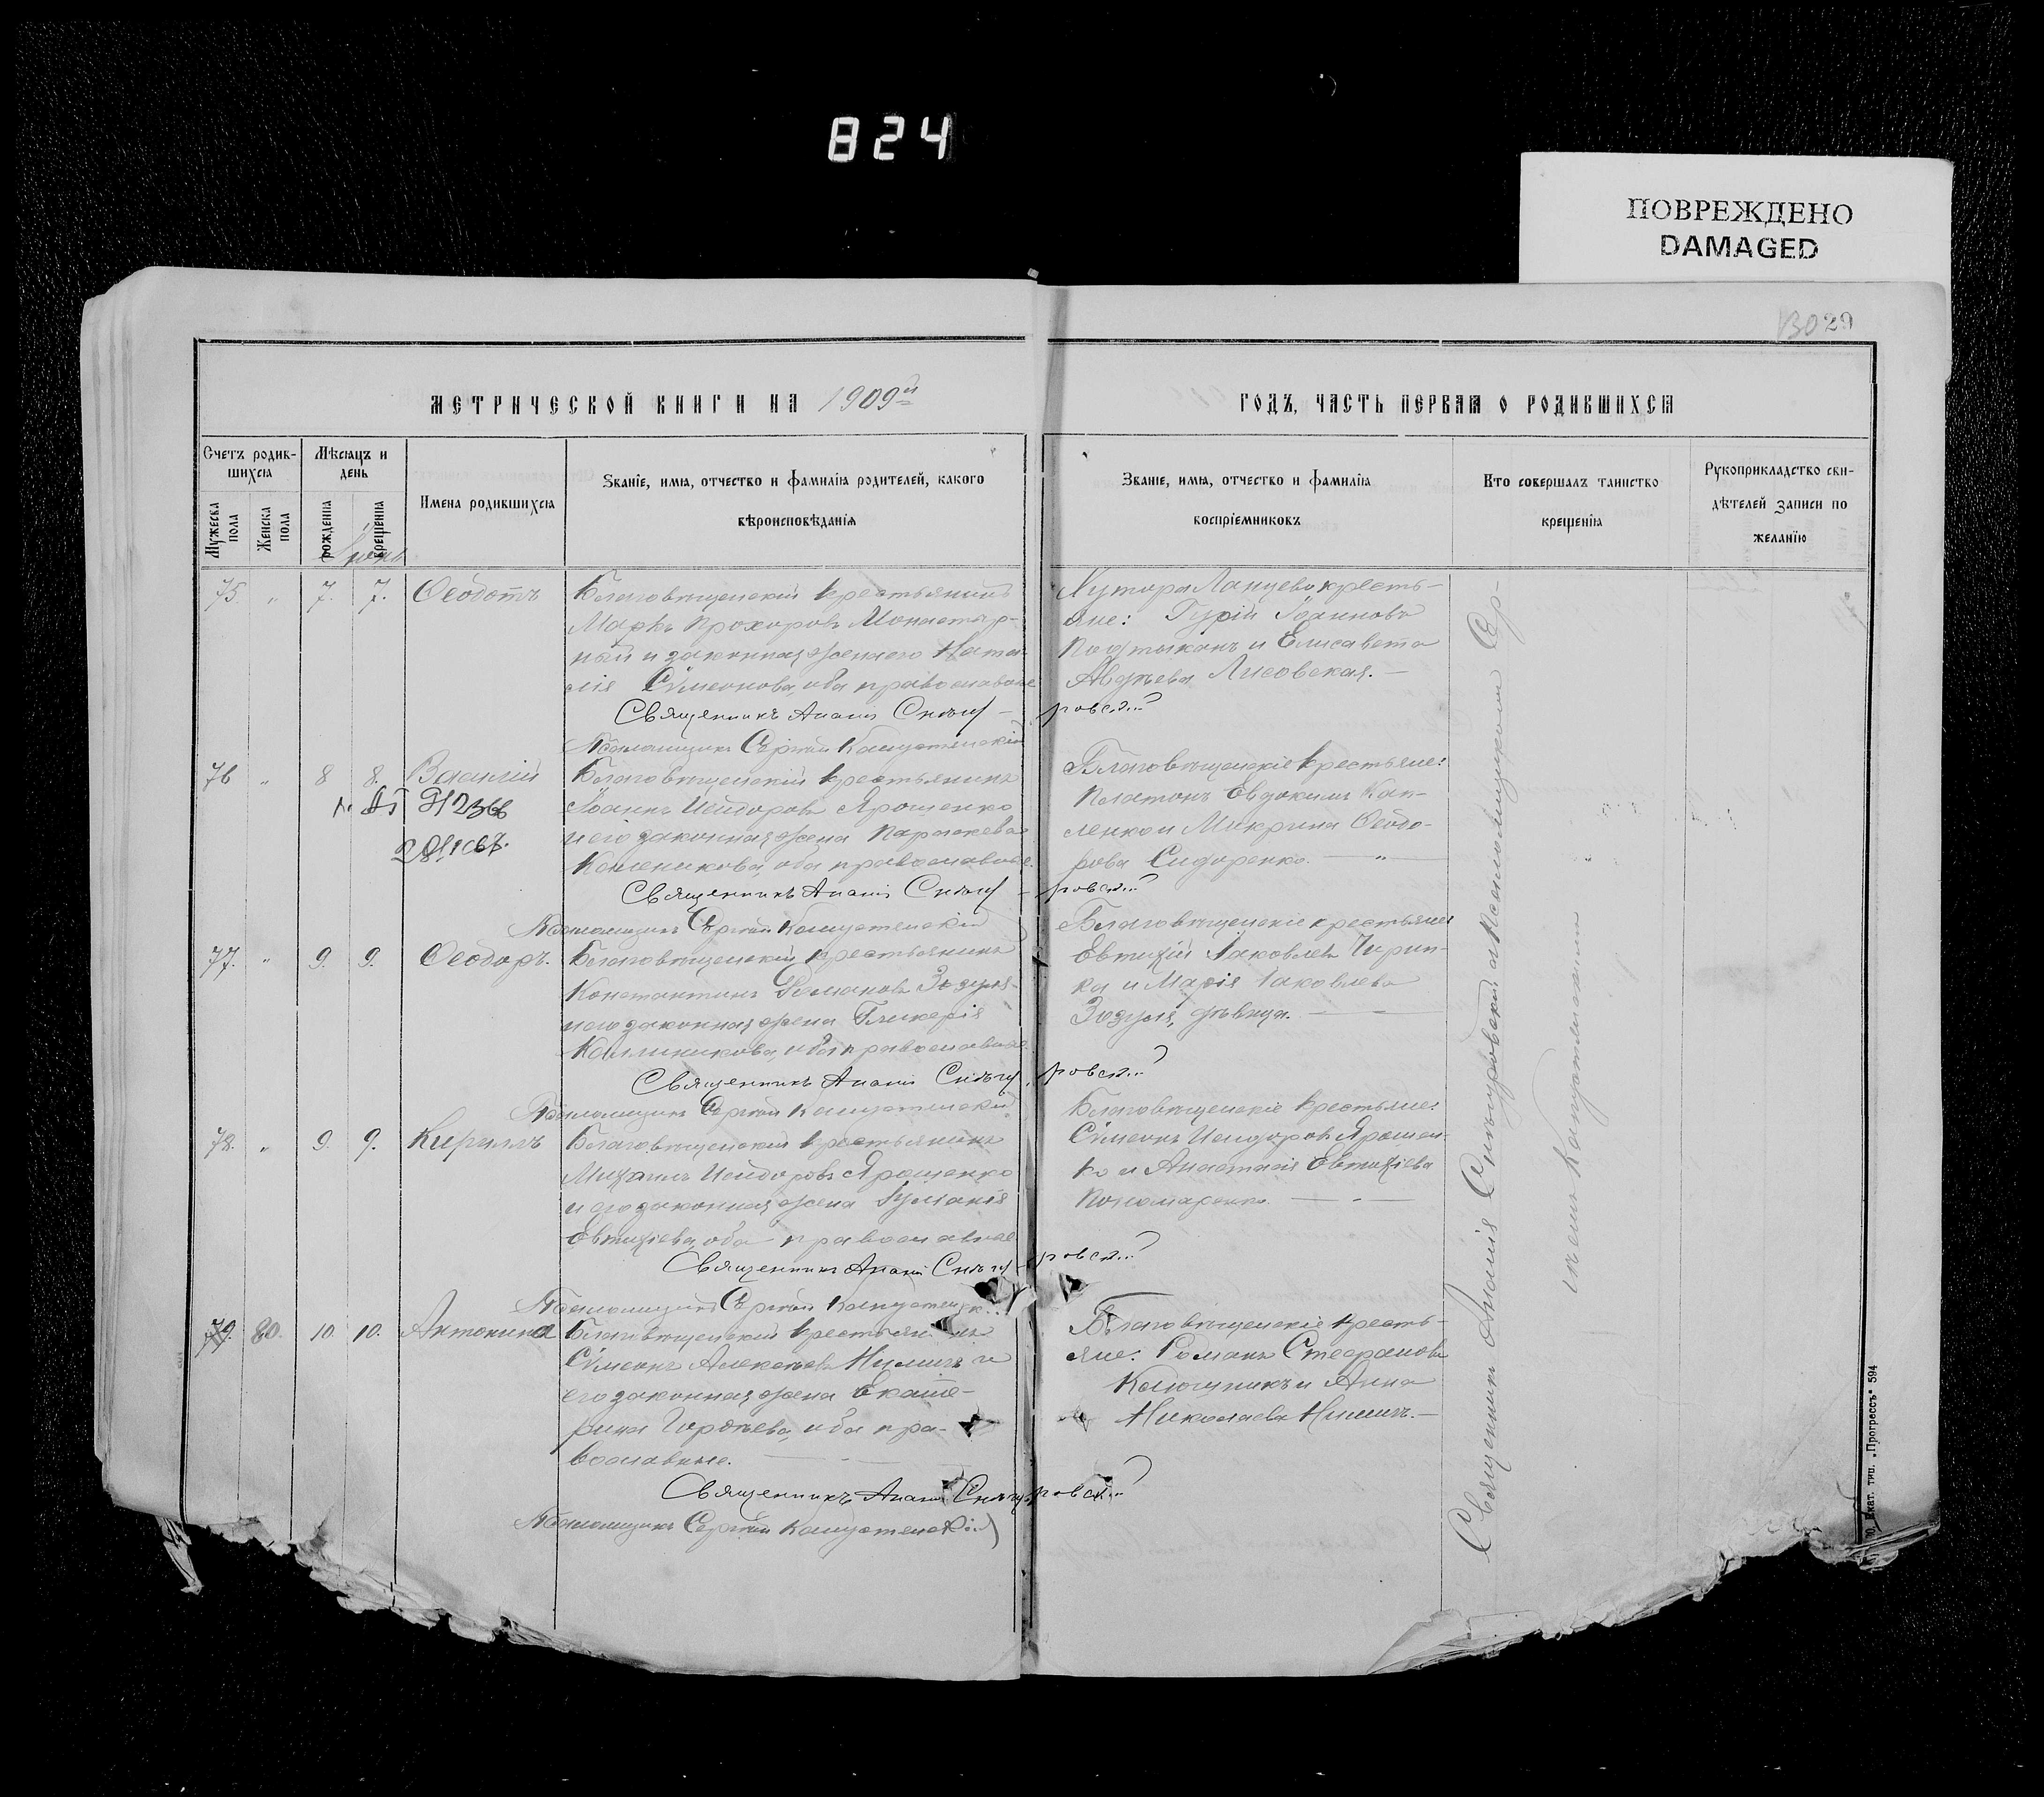 824
ПОВРЕЖДЕНО
DAMAGED
29
МЕТРИЧЕСКОЙ КНИГИ НА 1909й
ГОДЪ, ЧАСТЬ ПЕРВАЯ О РОДИВШИХСЯ
Счетъ родив-
шихся
Мужеска пола
Женска пола
Мѣсяцъ и
день
рожденія
крещенія
Имена родившихся
Званіе, имя, отчество и фамилія родителей, какого
вѣроисповѣданія
Званіе, имя, отчество и фамилія
воспріемниковъ
Кто совершалъ таинство
крещенія
Рукоприкладство сви-
дѣтелей записи по
желанію
Іюнь
75. " 7. 7. Ѳеодотъ
Благовѣщенскій крестьянинъ
Маркъ Прохоровъ Монастыр-
ный и законная жена его Ната-
лія Сѵмеонова, оба православные
Священникъ Ананія Снѣгуровскій
Псаломщикъ Сергій Капустянскій
Хутора Ланцева кресть-
яне: Гурій Іоанновъ
и Елисавета
Авдѣева Лисовская.
76 " 8 8. Василій
Благовѣщенскій крестьянинъ
Іоаннъ Исидоровъ Ярошенко
и его законная жена Параскева
оба православные.
Священникъ Ананія Снѣгуровскій
Псаломщикъ Сергій Капустянскій
Благовѣщенскіе крестьяне:
Платонъ Евдокимовъ Кап-
ленко и Макрина Ѳеодо-
рова Сидоренко.
77. " 9. 9. Ѳеодоръ.
Благовѣщенскій крестьянинъ
Константинъ Романовъ Зозуля
и его законная жена Гликерія
Каллиникова, оба православные.
Священникъ Ананія Снѣгуровскій
Псаломщикъ Сергій Капустянскій
Благовѣщенскіе крестьяне
Евтихій Іаковлевъ Чирип-
ка и Марія Іаковлева
Зозуля, дѣвица.
78. " 9. 9. Кириллъ
Благовѣщенскій крестьянинъ
Михаилъ Исидоровъ Ярошенко
и его законная жена Іуліанія
Евтихіева, оба православные
Священникъ Ананія Снѣгуровскій
Псаломщикъ Сергій Капустянск..
Благовѣщенскіе крестьяне:
Сѵмеонъ Исидоровъ Ярошен-
ко и Анастасія Евтихіева
Пономаренко.
79. 80. 10. 10. Антонина
Благовѣщенскій крестьянинъ
Сѵмеонъ Алексѣевъ и
его законная жена Екате-
рина Гордѣева, оба пра-
вославные.
Священникъ Ананія Снѣгуровскій
Псаломщикъ Сергій Капустянскій
Благовѣщенскіе кресть-
яне: Романъ Стефановъ
Калюжникъ и Анна
Николаева
Священникъ Ананія Снѣгуровскій съ псаломщикомъ Сер-
гіемъ Капустянскимъ
Екат. тип. „Прогрессъ" 594